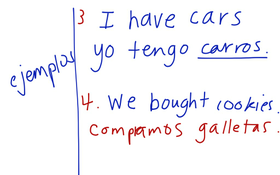 ejemplos
3 I have cars
yo tengo carros.
4. We bought cookies.
compramos galletas.